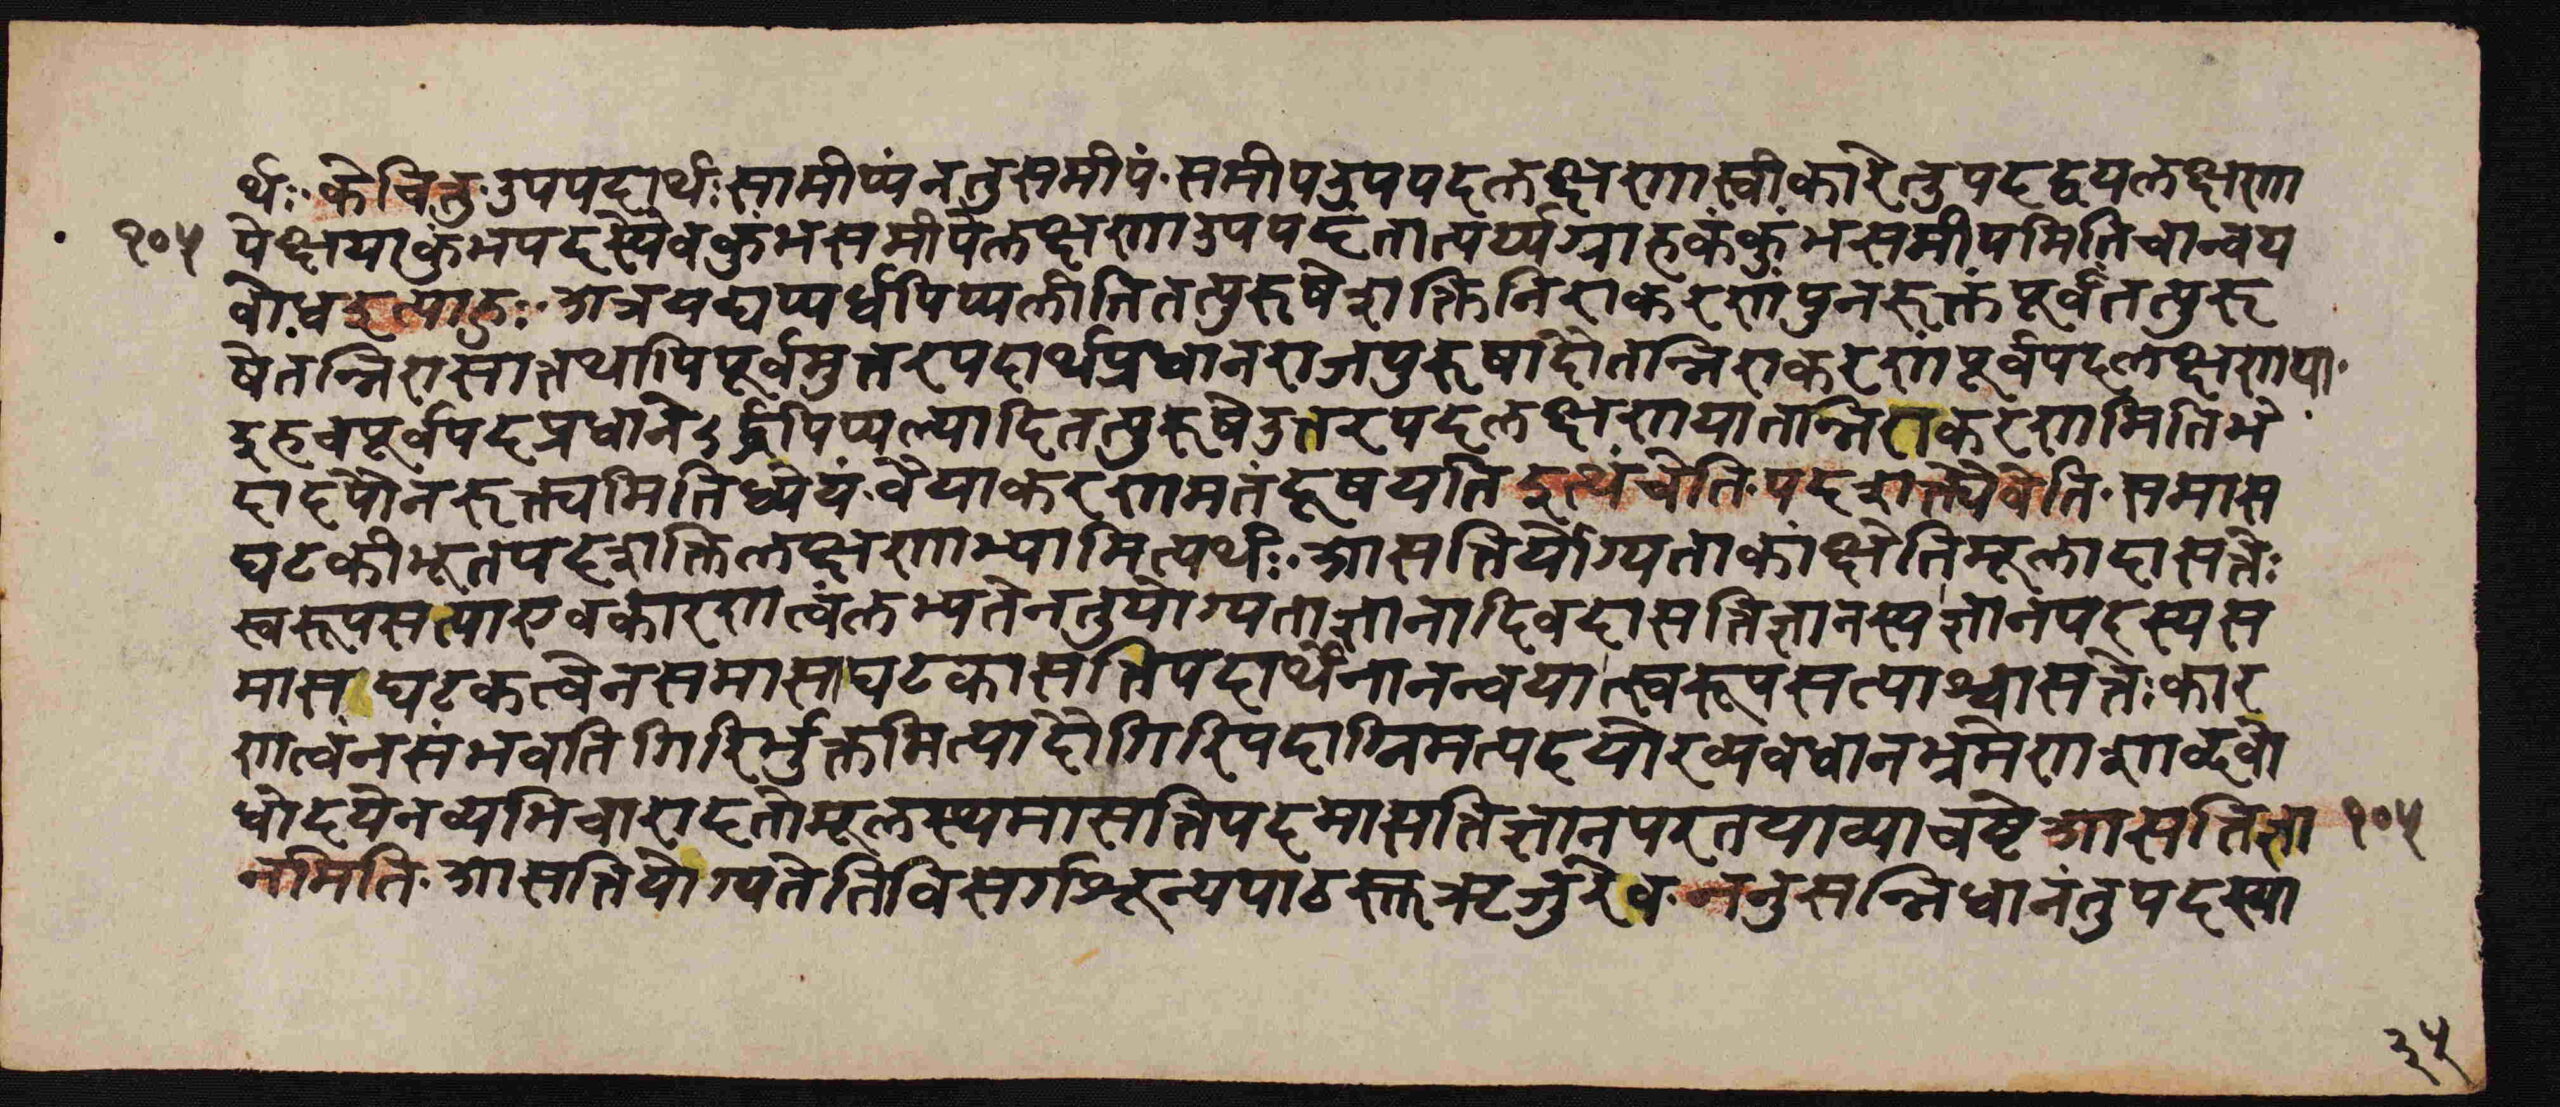 र्थः केचित्तु उपपदार्थः सामीप्यं न तु समीपं समीप उपपदलक्षणास्वीकारे तु पदद्वयलक्षणा
१०५ पेक्षया कुंभपदस्यैव कुंभसमीपे लक्षणा उपपदं तात्पर्य्यग्राहकं कुंभसमीपमिति चान्वय
बोध इत्याहुः अत्र यद्यप्यर्धपिप्पलीति तत्पुरूषे शक्तिनिराकरणं पुनरूक्तं पूर्वं तत्पुरू
षे तन्निरासात् तथापि पूर्वमुत्तरपदार्थप्रधानराजपुरूषादौ तन्निराकरणं पूर्वपदलक्षणया
इह च पूर्वपदप्रधाने ऽर्द्धपिप्पल्यादितत्पुरूषे उत्तरपदलक्षणया तन्निराकरणमिति भे
दादपौनरूक्त्यमिति ध्येयं वैयाकरणमतं दूषयति इत्थं चेति पदशक्त्यैवेति समास
घटकीभूतपदशक्तिलक्षणाभ्यामित्यर्थः आसत्तिर्योग्यताकांक्षेति मूलादासत्तेः
स्वरूपसत्या एव कारणत्वं लभ्यते न तु योग्यताज्ञानादिवदासत्तिज्ञानस्य ज्ञानपदस्य स
मास घटकत्वेन समासाघटकासत्तिपदार्थेनानन्वयात् स्वरूपसत्याश्चासत्तेः कार
णत्वं न संभवति गिरिर्भुक्तमित्यादौ गिरिपदाग्निमत्पदयोरव्यवधानभ्रमेण शाब्दबो
धोदयेन व्यभिचारादतो मूलस्थमासत्तिपदमासत्तिज्ञानपरतया व्याचष्टे आसत्तिज्ञा १०५
नमिति आसत्तियोग्यतेति विसर्गशून्यपाठस्तु ऋजुरेव ननु सन्निधानं तु पदस्या
३५